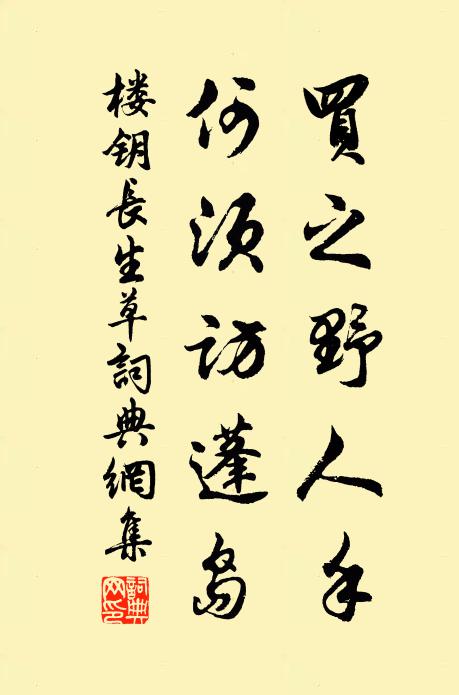 買之野人手
何須訪蓬島
楼钥長生草詞典網集
詞典網印